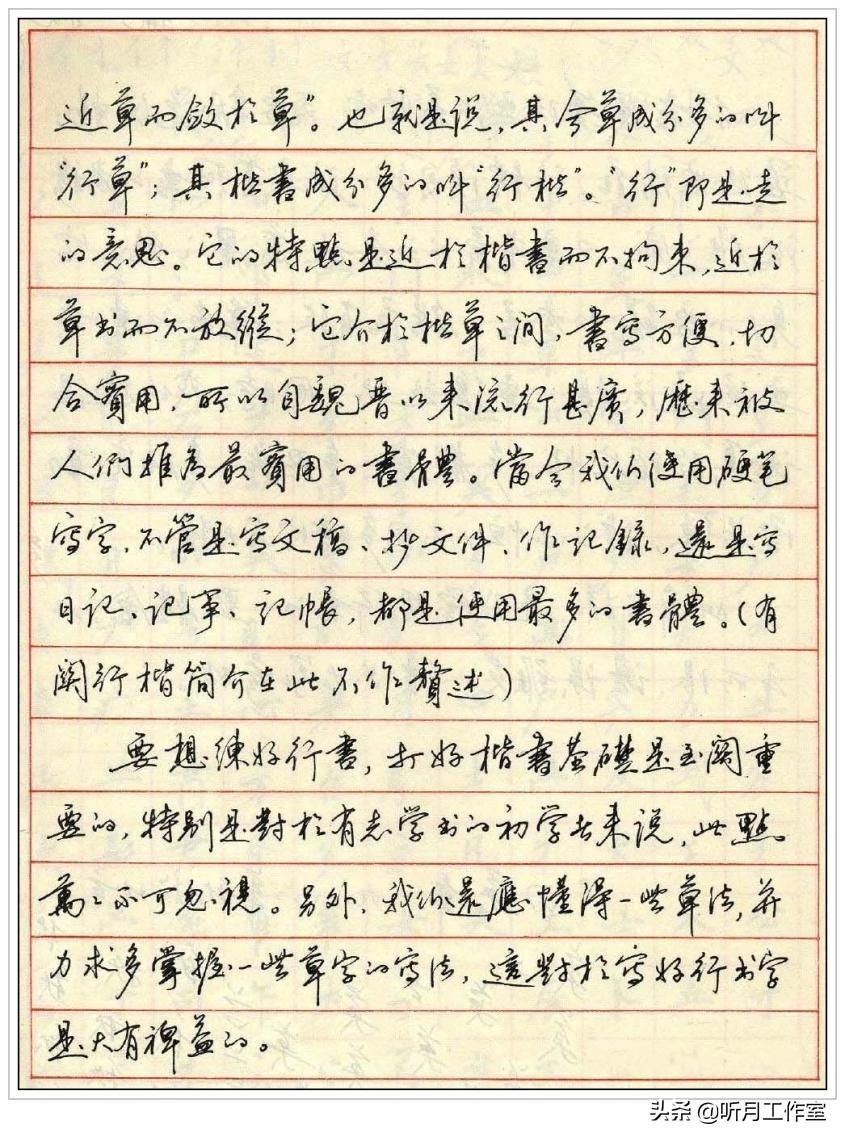 近草而敛於草”。也就是说，其今草成分多的叫
“行草”；其楷書成分多的叫“行楷”。“行”即是走
的意思。它的特點是近於楷書而不拘束，近於
草书而不放縱；它介於楷草之间，書寫方便，切
合實用，所以自魏晋以来流行甚廣，歷来被
人們推为最實用的書體。當今我们使用硬笔
寫字，不管是寫文稿、抄文件、作记録，還是寫
日记、记事、记帳，都是使用最多的書體。（有
関行楷简介在此不作贅述）
要想練好行書，打好楷書基礎是至関重
要的，特别是對於有志学书的初学者来说，此點
萬萬不可忽視。另外，我们還應懂得一些草法，并
力求多掌握一些草字的寫法，這對於寫好行书字
是大有裨益的。
头条 @听月工作室